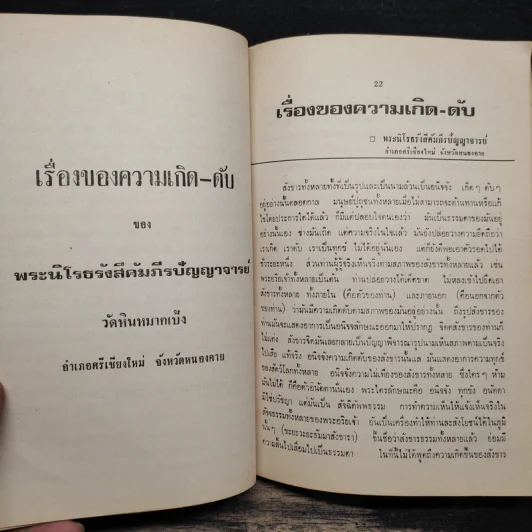 เรื่องของความเกิด-ดับ
ของ
พระนิโรธรังสีคัมภีรปัญญาจารย์
วัดหินหมากเป้ง
อำเภอศรีเชียงใหม่ จังหวัดหนองคาย
22
เรื่องของความเกิด-ดับ
□ พระนิโรธรังสีคัมภีรปัญญาจารย์
อำเภอศรีเชียงใหม่ จังหวัดหนองคาย
สังขารทั้งหลายทั้งที่เป็นรูปและเป็นนามล้วนเป็นอนิจจัง เกิด ๆ ดับ ๆ
อยู่อย่างนั้นตลอดกาล มนุษย์ปุถุชนทั้งหลายเมื่อไม่สามารถจะต้านทานหรือแก้
ไขโดยประการใดได้แล้ว ก็มีแต่ปลอบใจตนเองว่า มันเป็นธรรมดาของมันอยู่
อย่างนั้นเอง ช่างมันเถิด แต่ความจริงในใจแล้ว มันยังปล่อยวางความยึดถือว่า
เราเกิด เราดับ เราเป็นทุกข์ ไม่ได้อยู่นั่นเอง แต่ก็ยังดีพอเอาตัวรอดไปได้
ชั่วระยะหนึ่ง ส่วนท่านผู้รู้จริงเห็นจริงตามสภาพของสังขารทั้งหลายแล้ว เช่น
พระอริยเจ้าทั้งหลายเป็นต้น ท่านปล่อยวางได้เด็ดขาด ไม่หลงเข้าไปยึดเอา
สังขารทั้งหลาย ทั้งภายใน (คือตัวของท่าน) และภายนอก (คือนอกจากตัว
ของท่าน) ว่ามันมีความเกิดดับตามสภาพของมันอยู่อย่างนั้น ถึงรูปสังขารของ
ท่านมันจะแสดงอาการเป็นอนิจจลักษณะออกมาให้ปรากฏ จิตตสังขารของท่านก็
ไม่แต่ง สังขารจิตมันเลยกลายเป็นปัญญาพิจารณารูปนามเห็นสภาพความเป็นจริง
ไปเสีย แท้จริง อนิจจังความเกิดดับของสังขารนั้นแล มันแสดงอาการความทุกข์
ของสัตว์โลกทั้งหลาย อนิจจังความไม่เที่ยงของสังขารทั้งหลาย ซึ่งใคร ๆ ห้าม
มันไม่ได้ ก็คือตัวอนัตตานั่นเอง พระไตรลักษณะคือ อนิจจัง ทุกขัง อนัตตา
มิใช่ปรัชญา แต่มันเป็น สัจฉิคัพธรรม การทำความเห็นให้แจ้งเห็นจริงใน
สัจธรรมทั้งหลายของพระอริยเจ้า อันเป็นเครื่องทำให้ท่านละสังโยชน์ได้ในภูมิ
นั้นๆ (ขะยะวะยะธัมมาสังขารา) ขึ้นชื่อว่าสังขารธรรมทั้งหลายแล้ว ย่อมมี
ความสิ้นไปเสื่อมไปเป็นธรรมดา ในที่นี้ไม่ได้พูดถึงความเกิดขึ้นของสังขาร